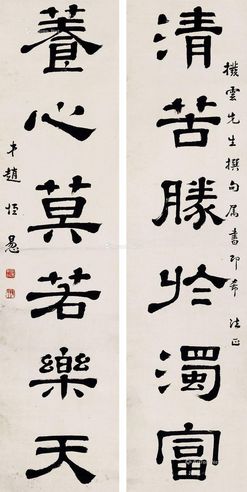 撥雲先生撰句屬書即希 法正
清苦勝於濁富
養心莫若樂天
弟趙恆惖